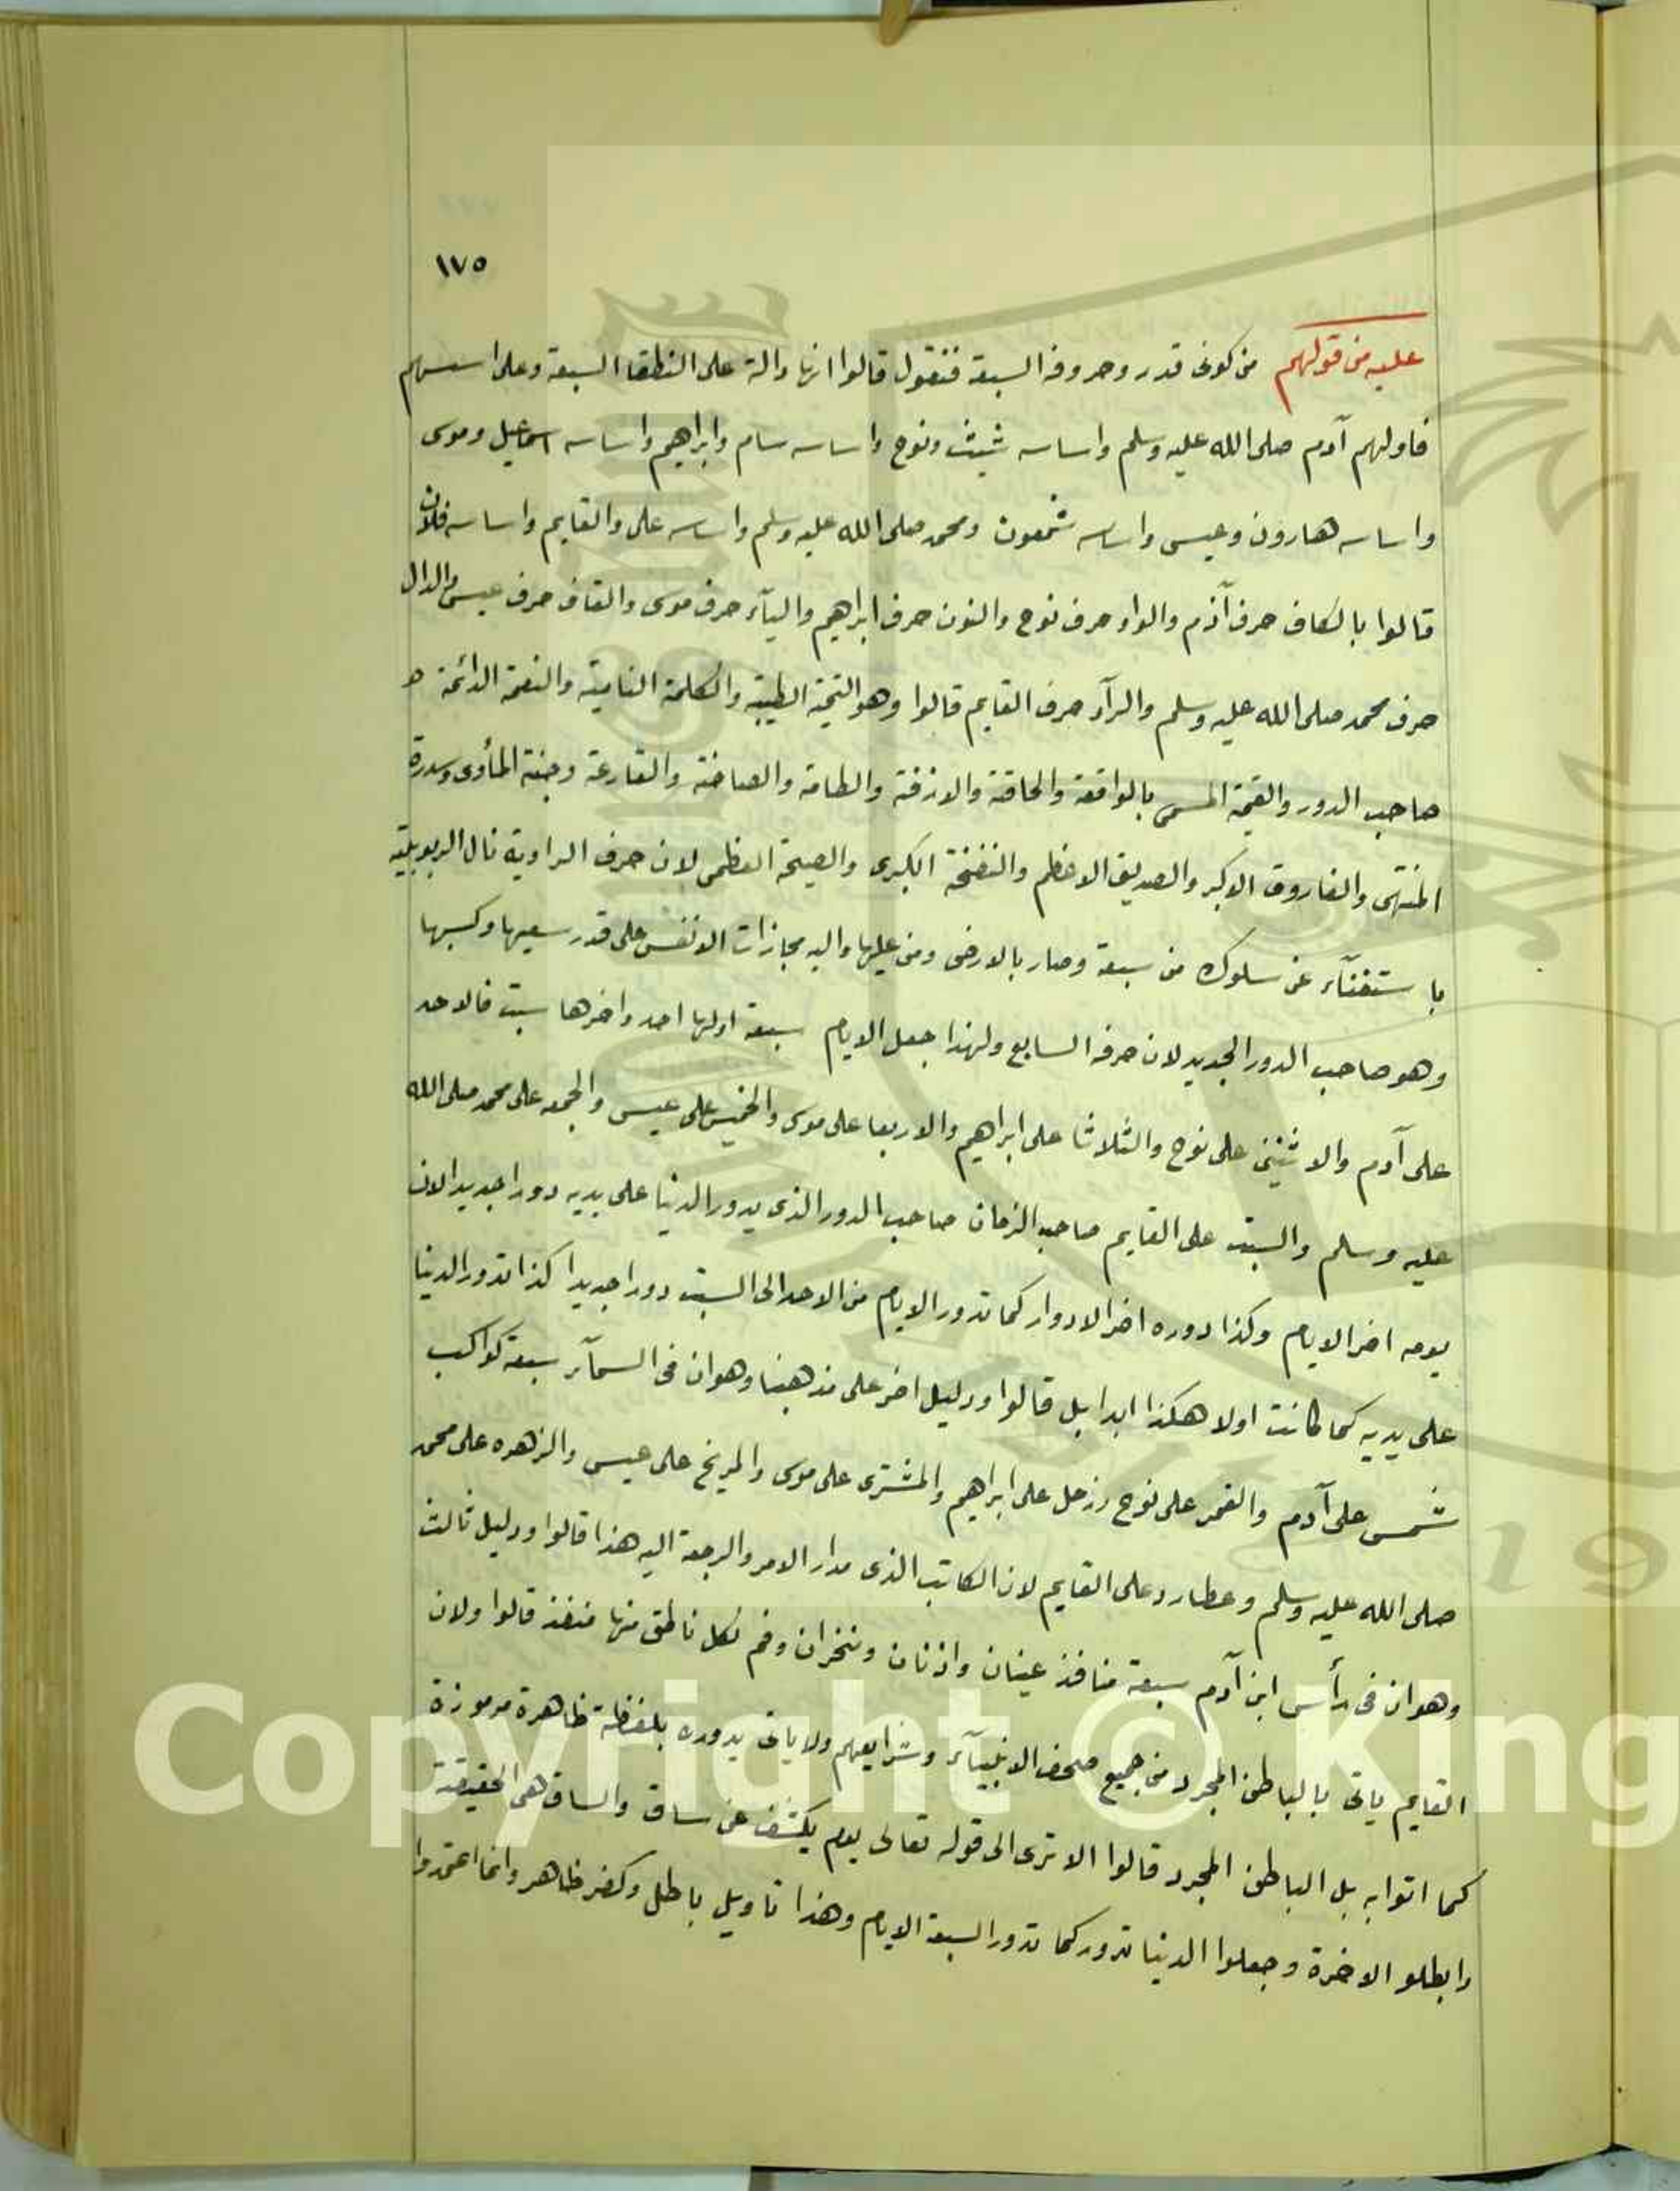 ١٧٥
عليه من قولهم من كونى قدر وحروفه السبعة فنقول قالوا انها دالة على النطقا السبعة وعلى اسسهم
فاولهم آدم صلى الله عليه وسلم واساسه شيث ونوح واساسه سام وابراهيم واساسه اسماعيل وموسى
واساسه هارون وعيسى واساسه شمعون ومحمد صلى الله عليه وسلم واساسه على والقايم واساسه فلان
قالوا بالكاف حرف آدم والواو حرف نوح والنون حرف ابراهيم واليآء حرف موسى والقاف حرف عيسى والدال
حرف محمد صلى الله عليه وسلم والرآء حرف القايم قالوا وهو التحية الطيبة والكلمة النامية والنعمة الدائمة
صاحب الدور والقيمة المسمى بالواقعة والحاقة والازفة والطامة والصاخة والقارعة وجنة المأوى وسدرة
المنتهى والفاروق الاكبر والصديق الاعظم والنفخة الكبرى والصيحة العظمى لان حرف الراوية نال الربوبية
باستغنآء عن سلوك من سبعة وصار بالارض ومن عليها واليه مجازات الانفس على قدر سعيها وكسبها
وهو صاحب الدور الجديد لان حرفه السابع ولهذا جعل الايام سبعة اولها احد واخرها سبت فالاحد
على آدم والاثنين على نوح والثلاثا على ابراهيم والاربعا على موسى والخميس على عيسى والجمعه على محمد صلى الله
عليه وسلم والسبت على القايم صاحب الزمان صاحب الدور الذى يدور الدنيا على يديه دورا جديدا لان
يومه اخر الايام وكذا دوره اخر الادوار كما تدور الايام من الاحد الى السبت دورا جديدا كذا تدور الدنيا
على يديه كما كانت اولا هكذا ابدا بل قالوا ودليل اخر على مذهبنا وهو ان فى السمآء سبعة كواكب
شمس على آدم والقمر على نوح وزحل على ابراهيم والمشترى على موسى والمريخ على عيسى والزهره على محمد
صلى الله عليه وسلم وعطارد على القايم لان الكاتب الذى مدار الامر والرجعة اليه هذا قالوا ودليل ثالث
وهو ان فى رأس ابن آدم سبعة منافذ عينان واذنان ومنخران وفم لكل ناطق منها منفذ قالوا ولان
القايم ياتى بالباطن المجرد من جميع صحف الانبيآء وشرايعهم ولا ياتى بدوره بلفظة ظاهرة مرموزة
كما اتوا به بل الباطن المجرد قالوا الا ترى الى قوله تعالى يوم يكشف عن ساق والساق هى الحقيقة
وابطلو الاخرة وجعلوا الدنيا تدور كما تدور السبعة الايام وهذا تاويل باطل وكفر ظاهر وانما اعتمدوا
Copyright © King
19